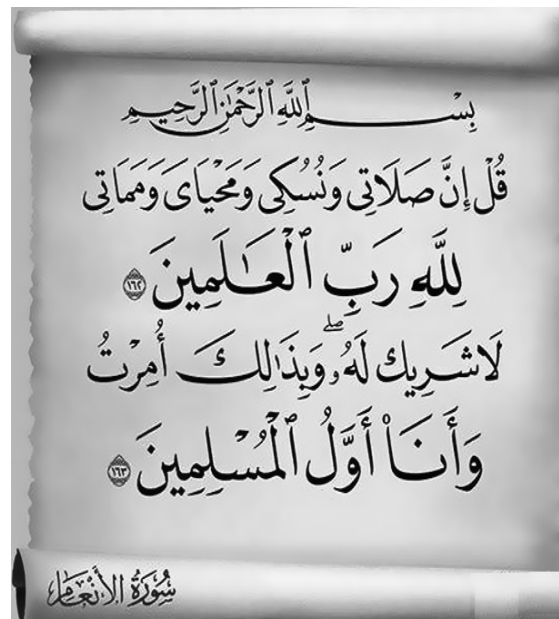 بِسْمِ ٱللَّهِ ٱلرَّحْمَٰنِ ٱلرَّحِيمِ
قُلْ إِنَّ صَلَاتِى وَنُسُكِى وَمَحْيَاىَ وَمَمَاتِى
لِلَّهِ رَبِّ ٱلْعَٰلَمِينَ ١٦٢
لَا شَرِيكَ لَهُۥ ۖ وَبِذَٰلِكَ أُمِرْتُ
وَأَنَا۠ أَوَّلُ ٱلْمُسْلِمِينَ ١٦٣
سُورَةُ الأَنْعَامِ